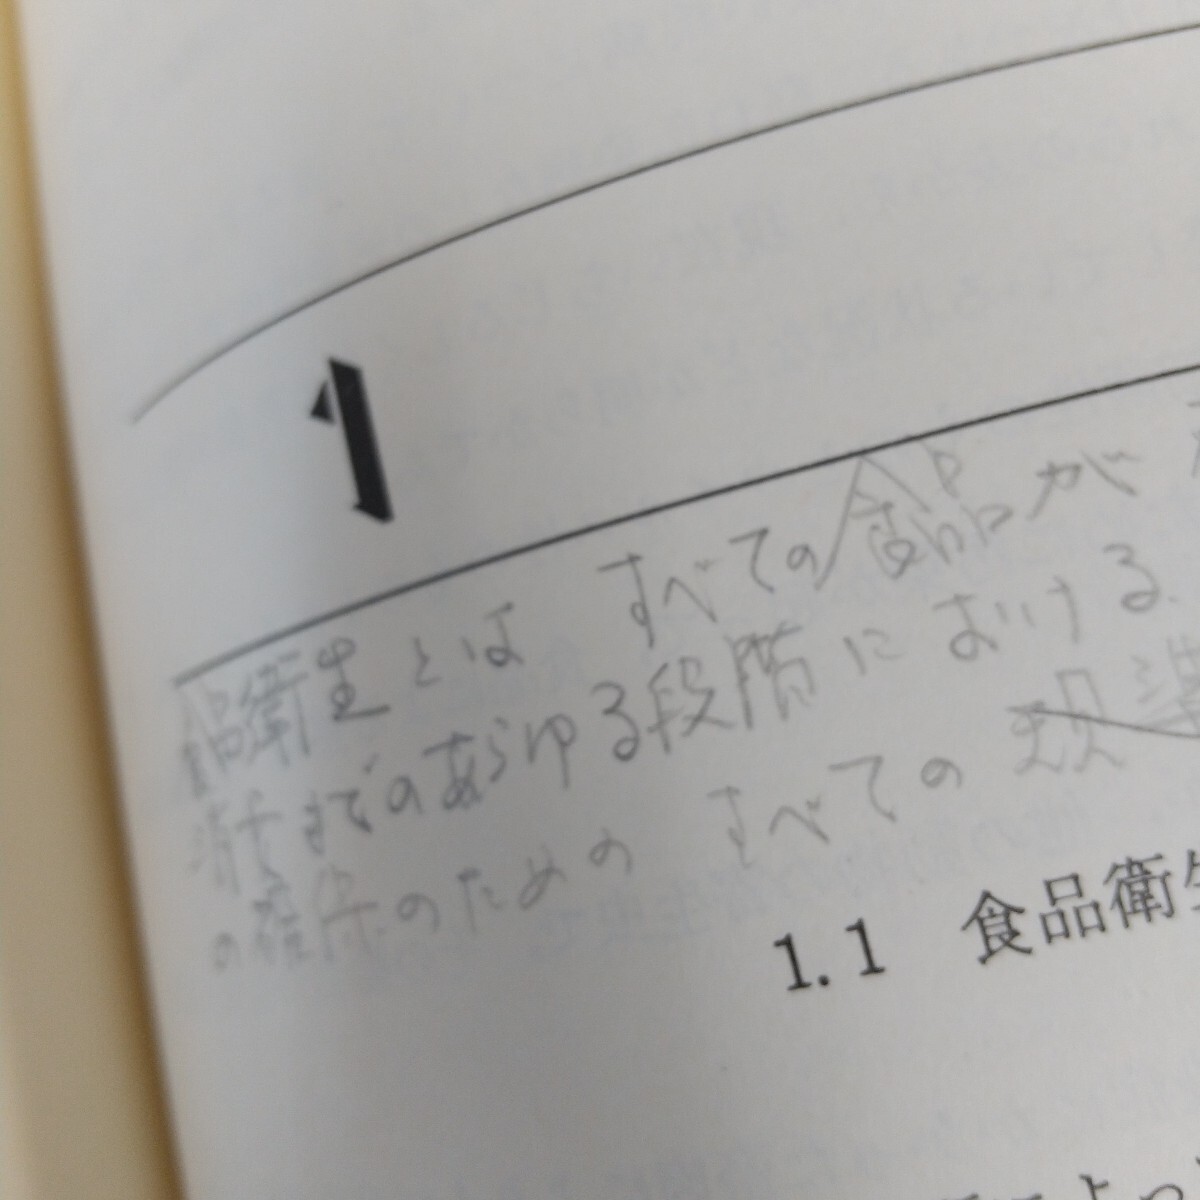 1
食品衛生とは すべての食品が
消費までのあらゆる段階における
の確保のための すべての 規準
1.1 食品衛生
よっ